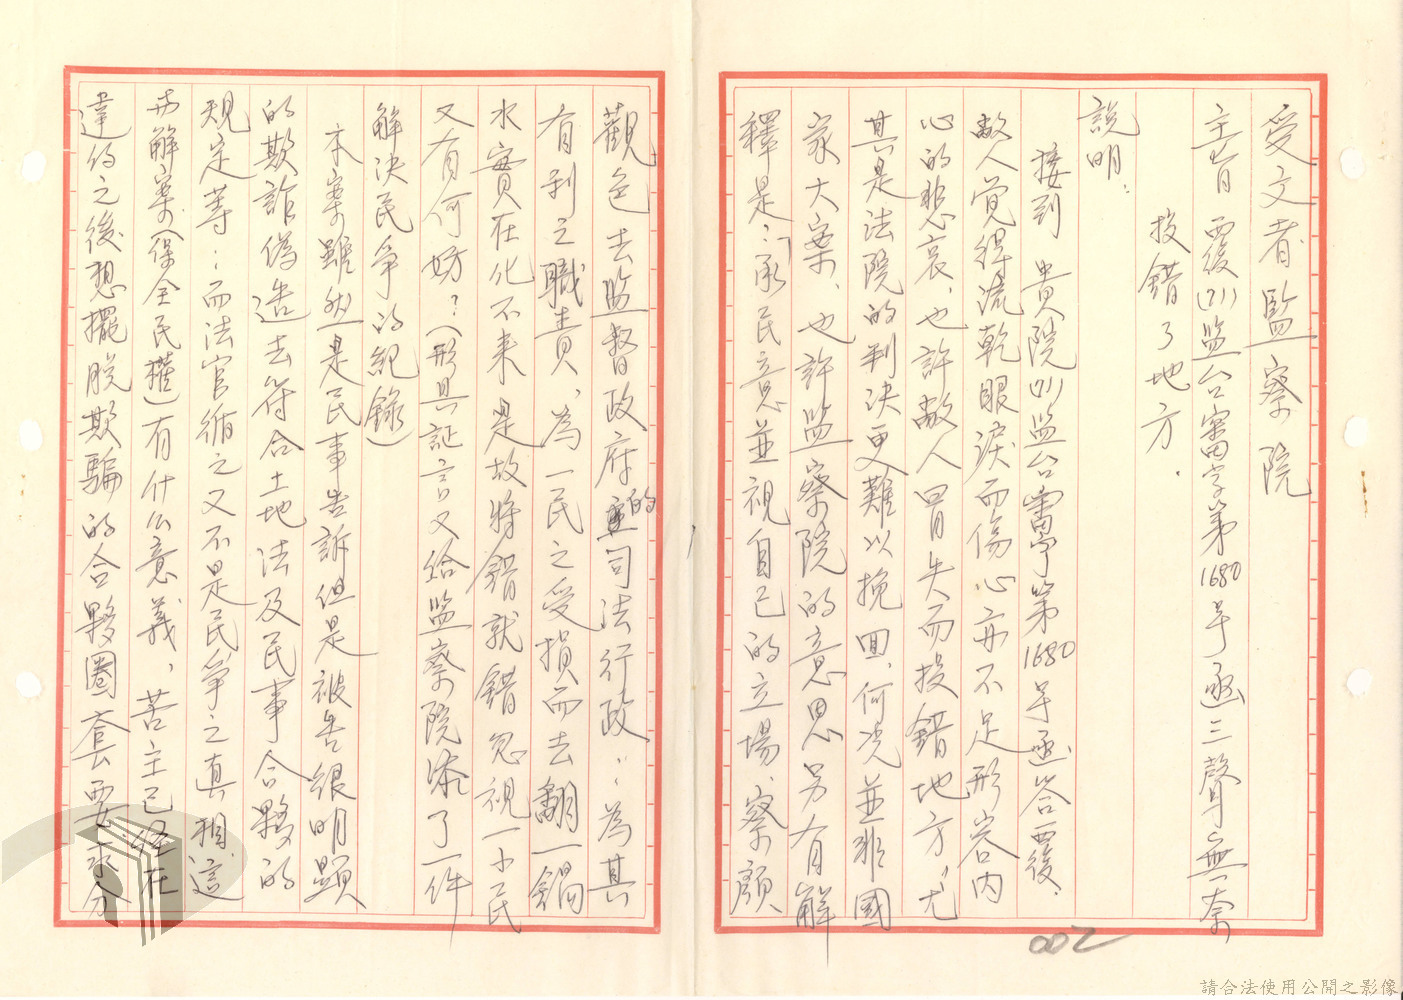 受文者監察院
主旨 覆(71)监台審字第1680号函三聲無奈
投錯了地方.
説明.
接到 貴院(71)监台審字第1680号函答覆後.
敝人覚得流乾眼淚而傷心亦不足形容内
心的悲哀.也許敝人冒失而投錯地方"尤
其是法院的判决更難以挽回.何况並非國
家大案.也許监察院的意思另有解
釋是:「承民意並視自己的立場.察顔
觀色去监督政府的司法行政..為其
有利之職責.為一民之受損而去翻一鍋
水實在化不来是故将錯就錯忽視一小民
又有何妨?(形具証言又給监察院添了一件
解决民争的紀錄)
本案雖然是民事告訴但是被告很明顯
的欺詐偽造去符合土地法及民事合夥的
規定等..而法官循之又不是民争之真相這
解案(保全民權)有什么意義.苦主已经在
違约之後想擺脱欺騙的合夥圈套要求分
002
請合法使用公開之影像